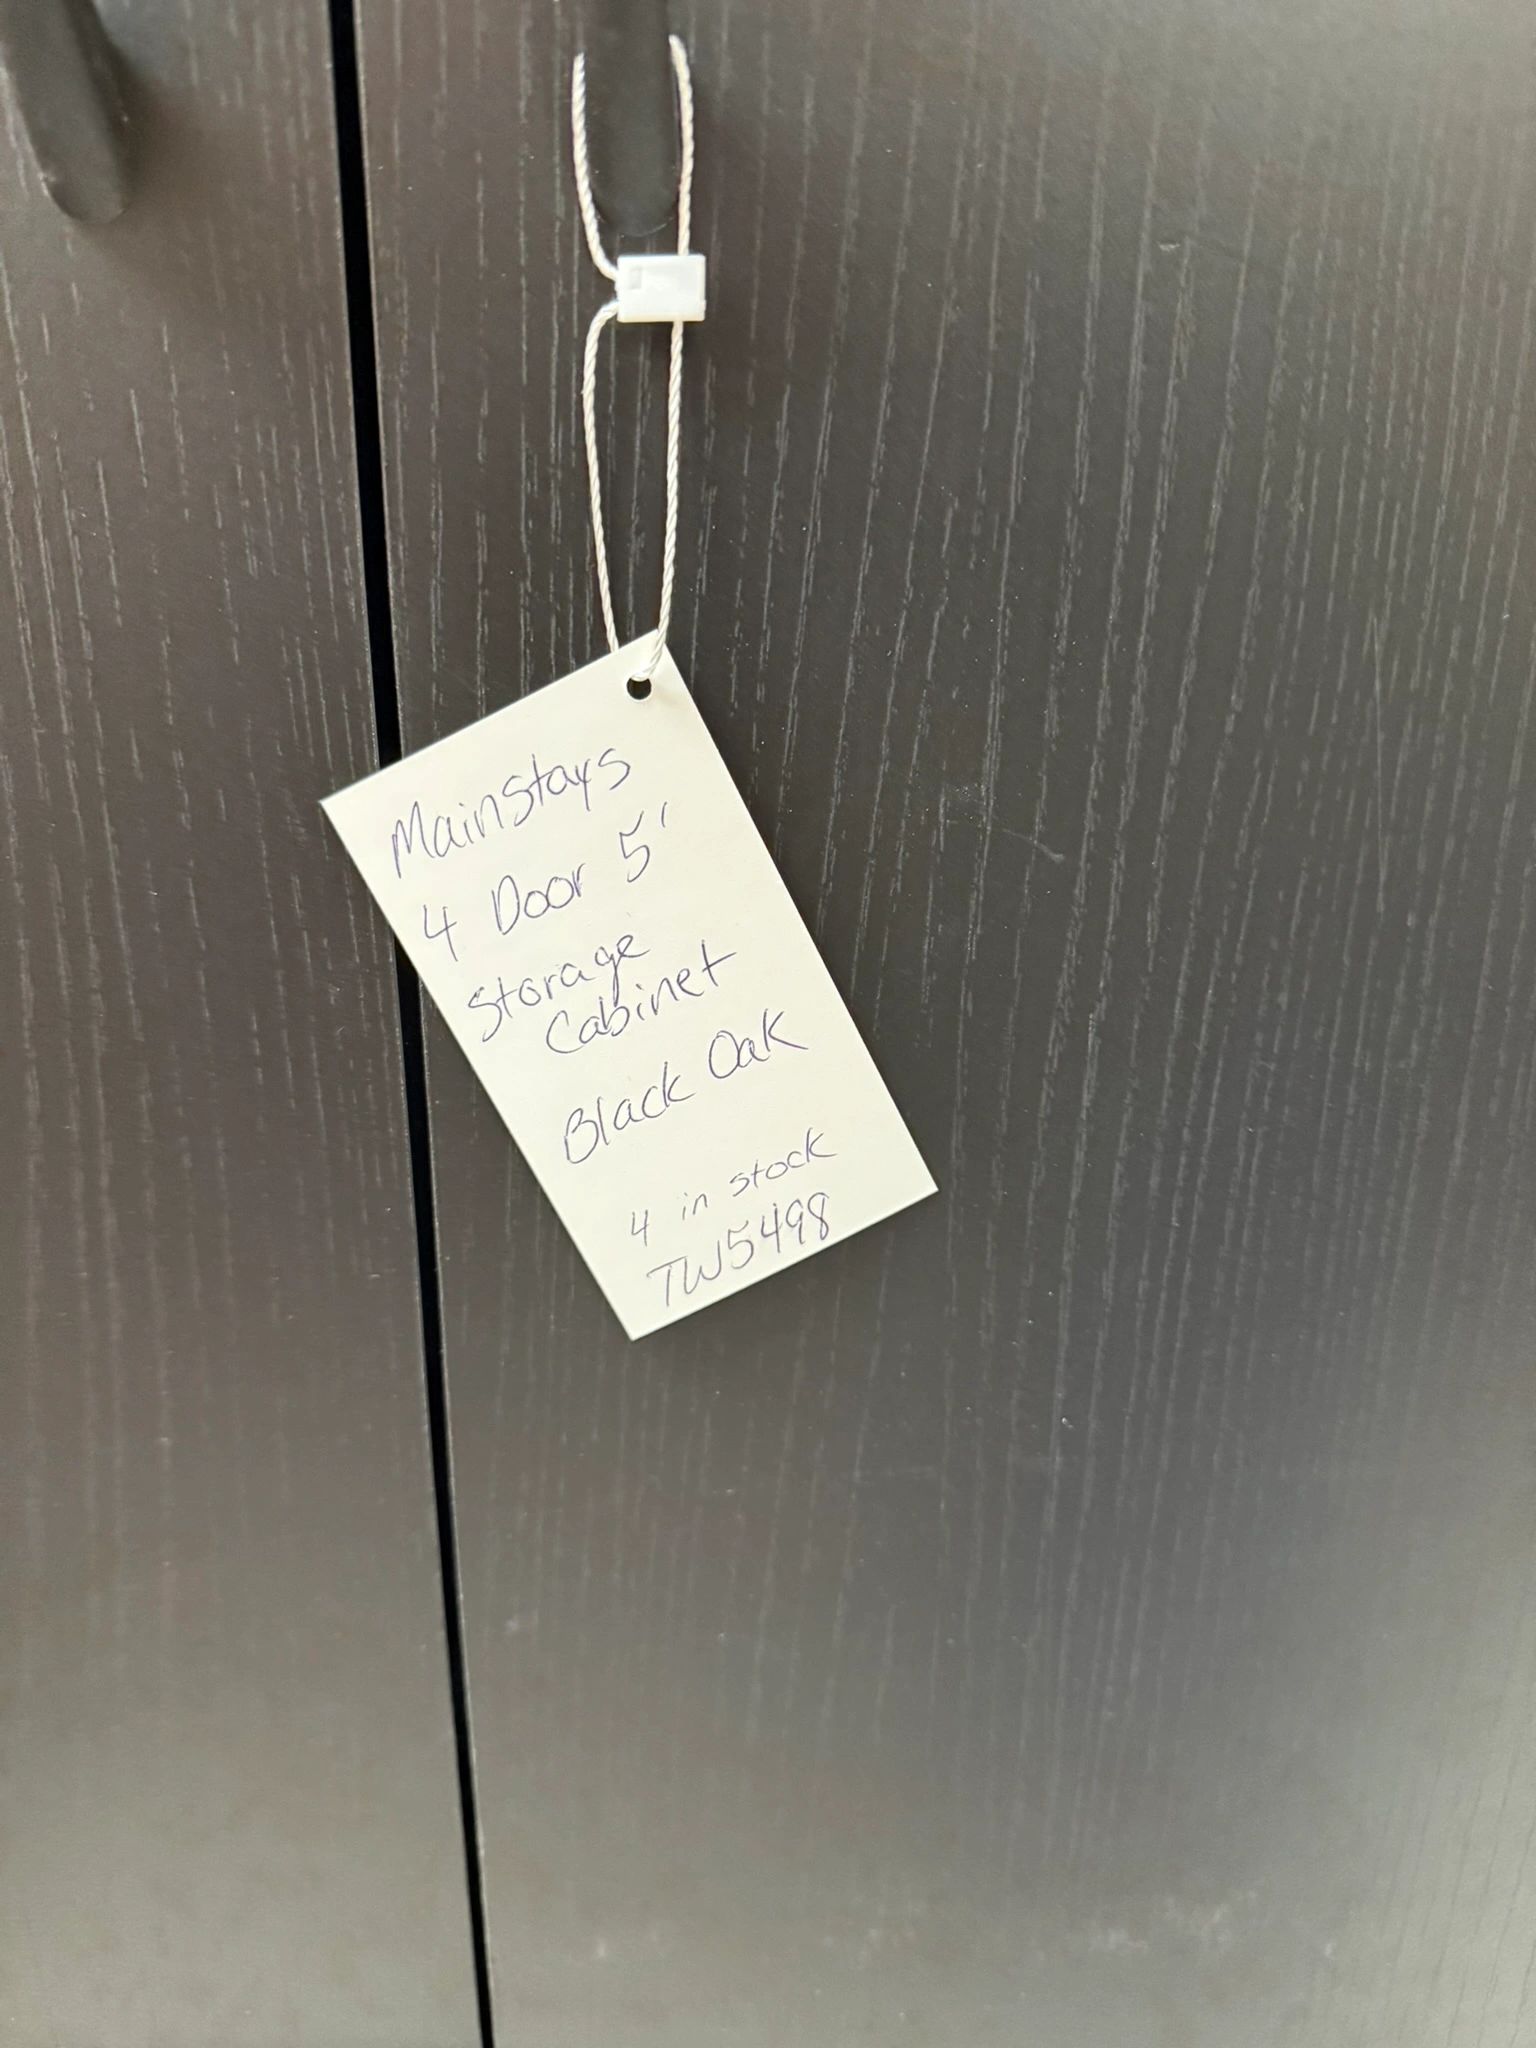 Mainstays
4 Door 5'
Storage
Cabinet
Black Oak
4 in stock
TW5498